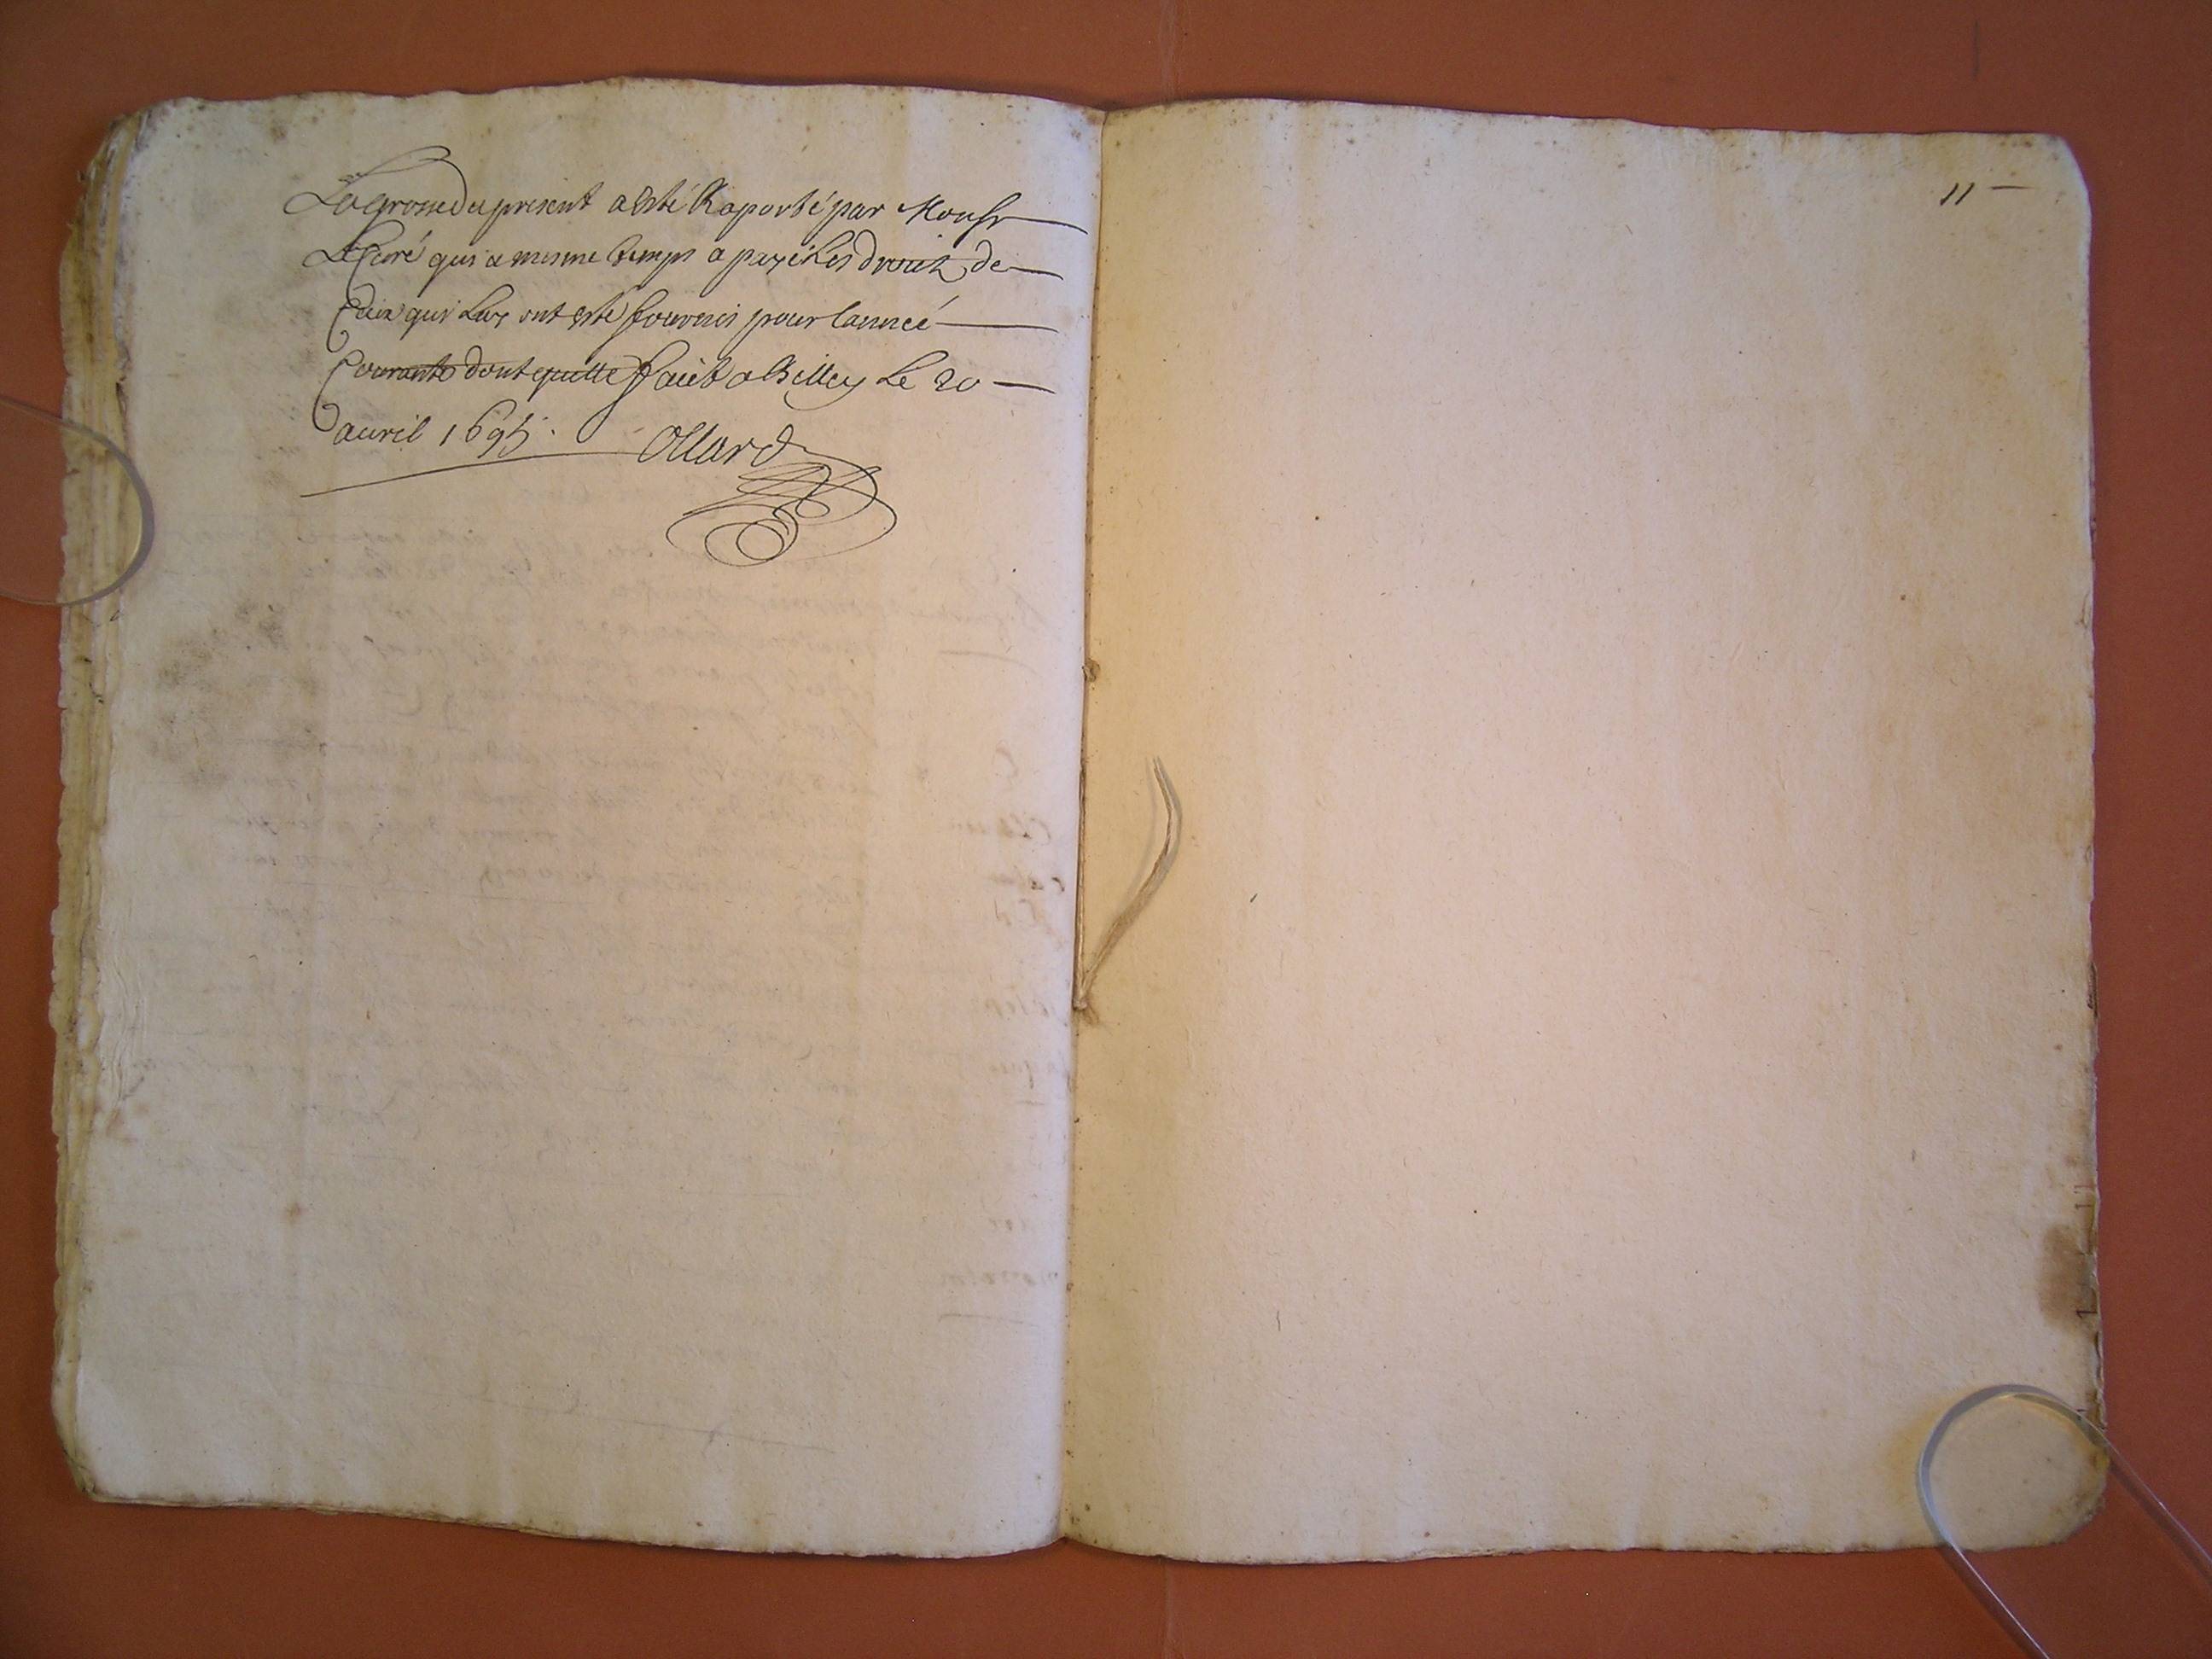 La grosse du present a esté Raporté par Monsr
Le Curé qui a mesme temps a payé Les droits de
Ceux qui Luy ont esté fournis pour lanneé
Courante dont quitte faict a Billey Le 20
auril 1695 . Ollard
11